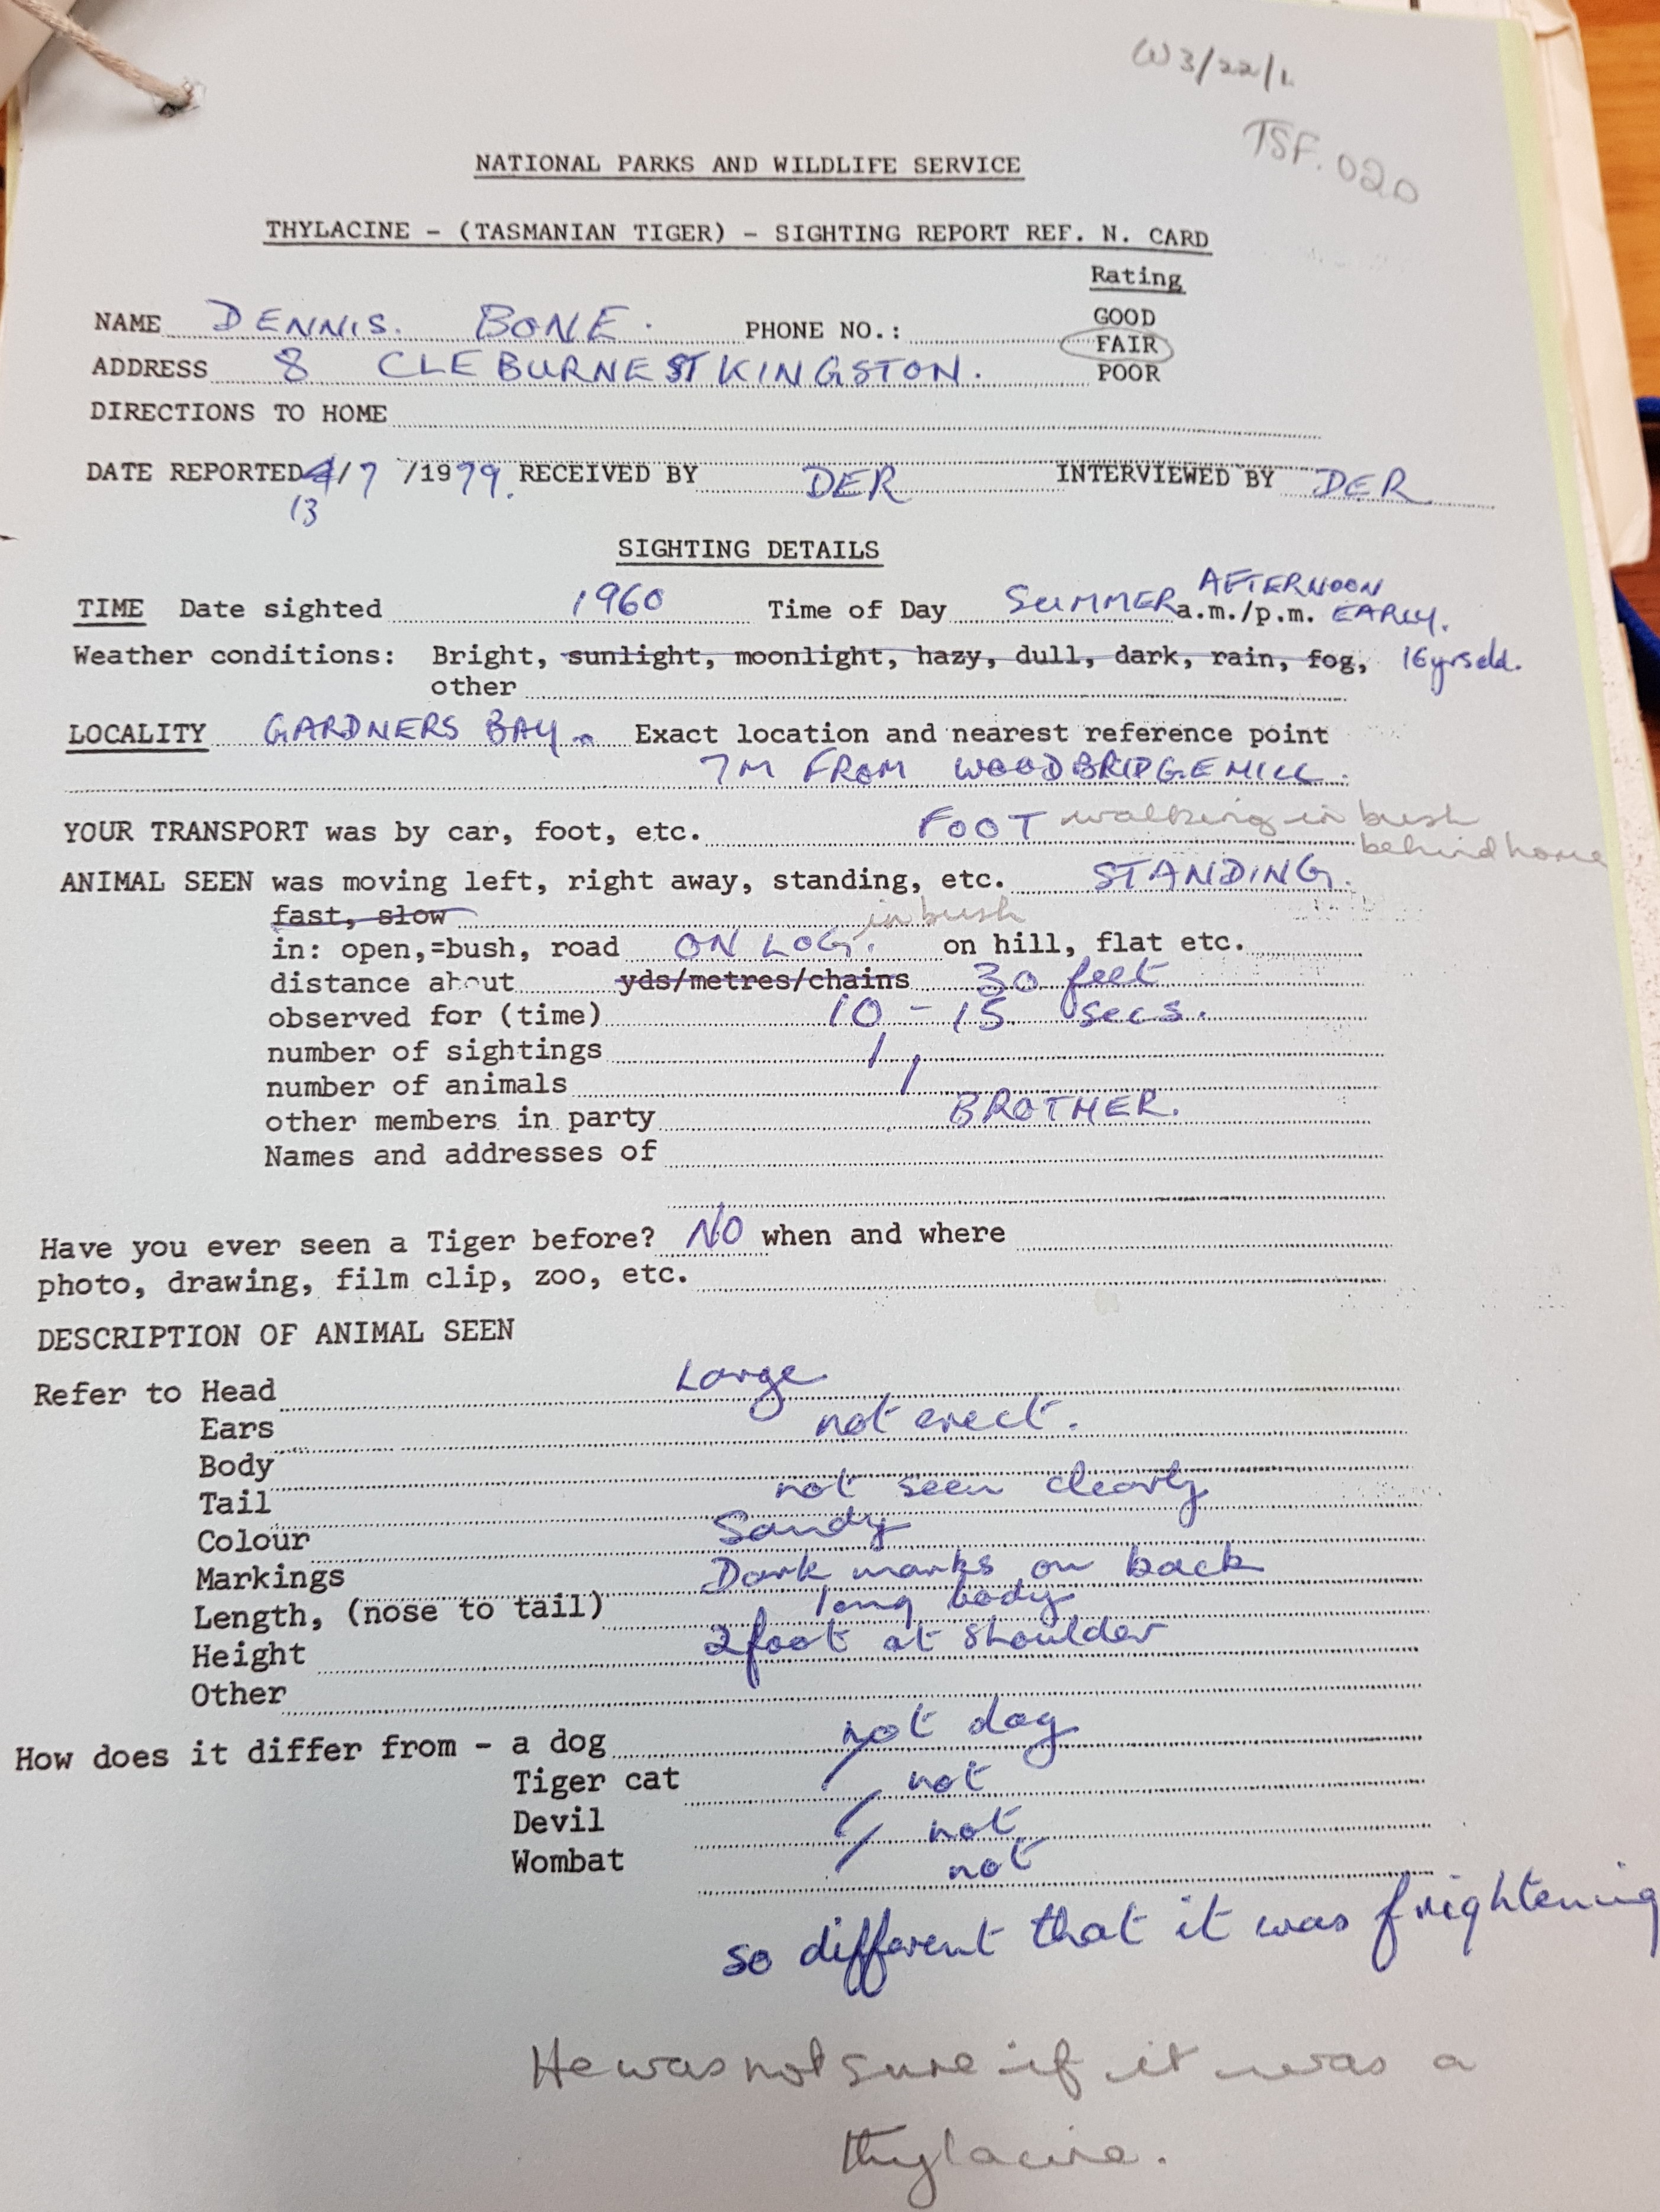 W3/22/1
TSF.020
NATIONAL PARKS AND WILDLIFE SERVICE
THYLACINE - (TASMANIAN TIGER) - SIGHTING REPORT REF. N. CARD
Rating
GOOD
NAME DENNIS. BONE. PHONE NO.:
FAIR
ADDRESS 8 CLEBURNE ST KINGSTON.
POOR
DIRECTIONS TO HOME
DATE REPORTED 4/7/1979. RECEIVED BY DER INTERVIEWED BY DER
13
SIGHTING DETAILS
AFTERNOON
TIME Date sighted 1960 Time of Day SUMMER a.m./p.m. EARLY.
Weather conditions: Bright, sunlight, moonlight, hazy, dull, dark, rain, fog, 16yrs old.
other
LOCALITY GARDNERS BAY. Exact location and nearest reference point
7M FROM WOODBRIDGE HILL.
YOUR TRANSPORT was by car, foot, etc. FOOT walking in bush
behind home
ANIMAL SEEN was moving left, right away, standing, etc. STANDING.
fast, slow in bush
in: open,=bush, road ON LOG. on hill, flat etc.
distance about yds/metres/chains 30 feet
observed for (time) 10 - 15 secs.
number of sightings 1
number of animals 1
other members in party BROTHER.
Names and addresses of
Have you ever seen a Tiger before? NO when and where
photo, drawing, film clip, zoo, etc.
DESCRIPTION OF ANIMAL SEEN
Refer to Head Large
Ears not erect.
Body
Tail not seen clearly
Colour Sandy
Markings Dark marks on back
Length, (nose to tail) long body
Height 2 foot at shoulder
Other
How does it differ from - a dog not dog
Tiger cat not
Devil not
Wombat not
so different that it was frightening
He was not sure if it was a
thylacine.